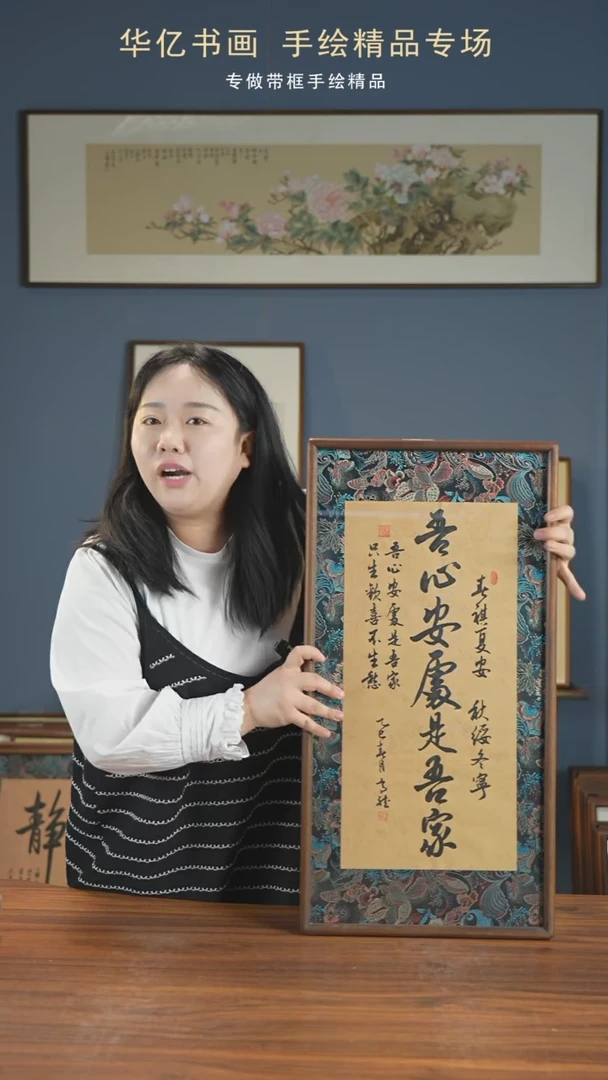 华亿书画 手绘精品专场
专做带框手绘精品
春祺夏安 秋绥冬宁
吾心安处是吾家
吾心安處是吾家
只生歡喜不生愁
乙巳春月
静